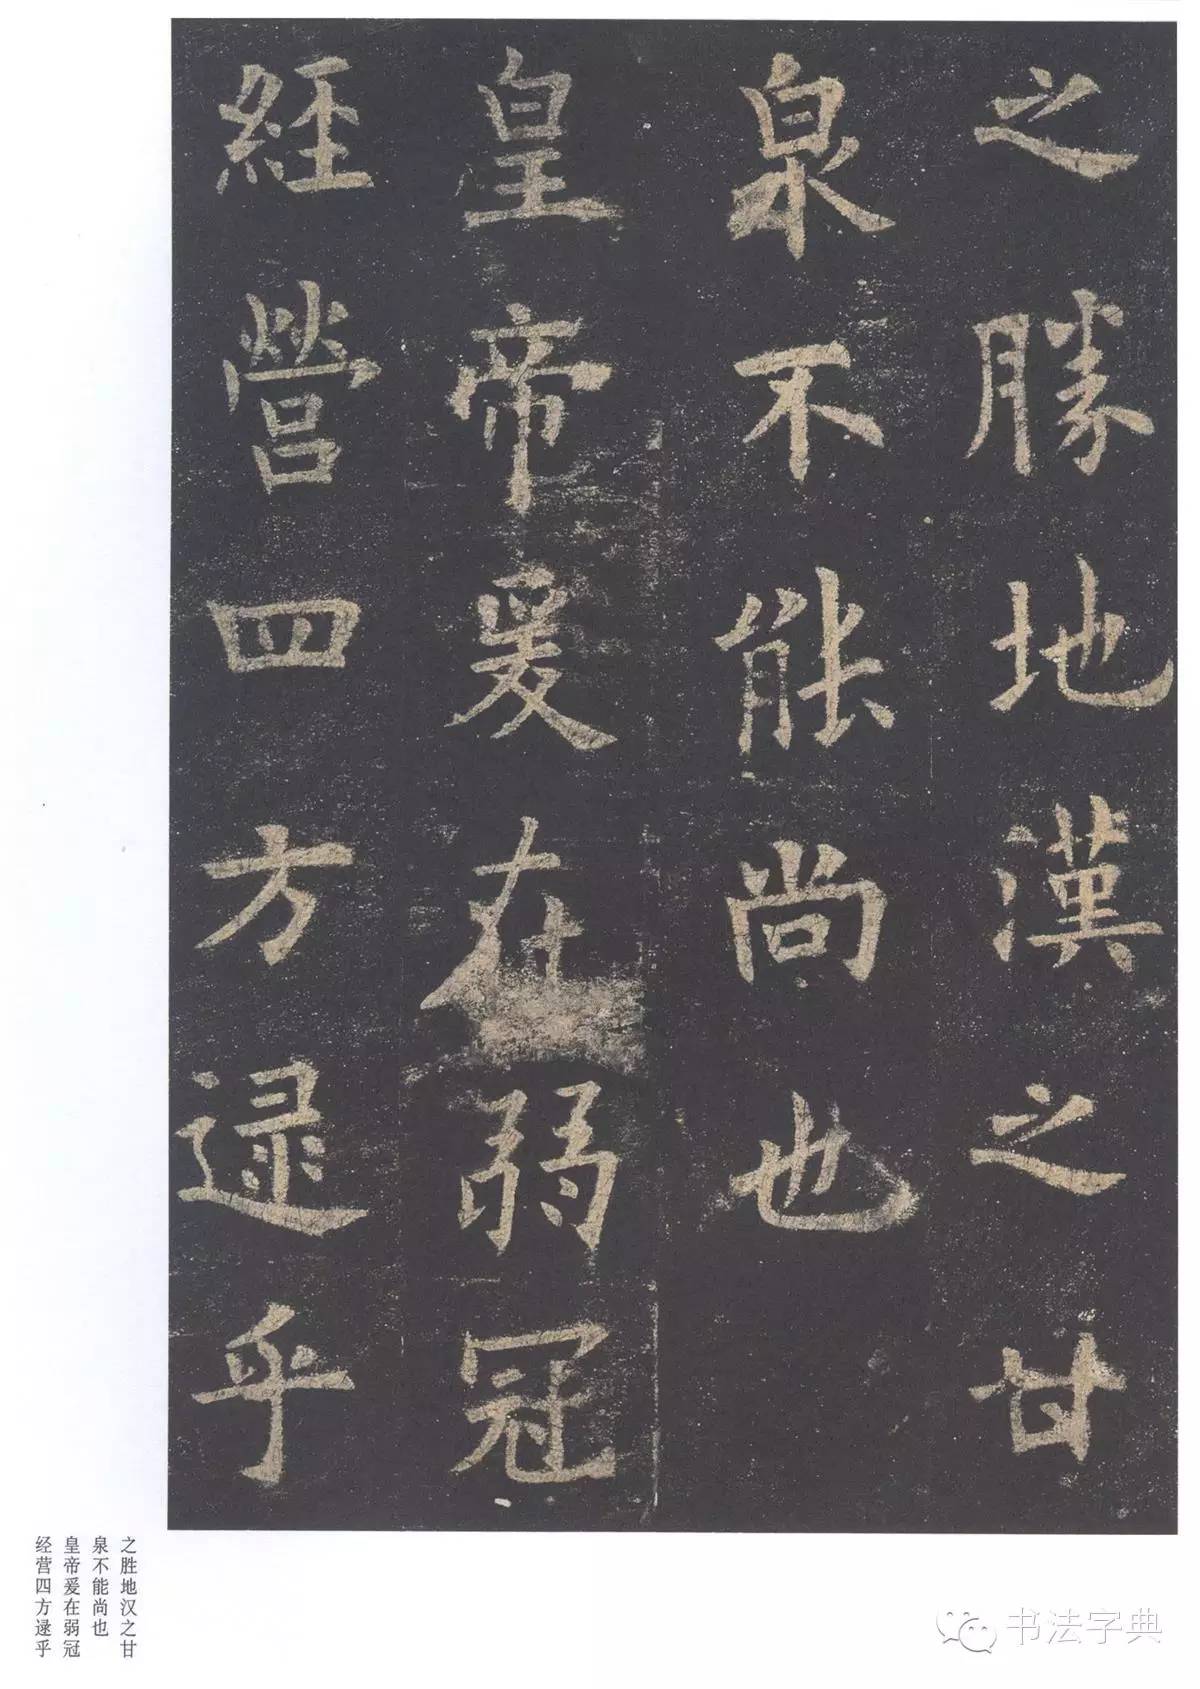 之勝地漢之甘
泉不能尚也
皇帝爰在弱冠
經營四方逯乎
之胜地汉之甘
泉不能尚也
皇帝爰在弱冠
经营四方逯乎
书法字典